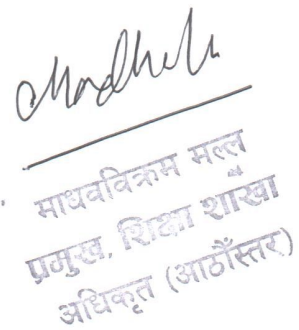 माधवविक्रम मल्ल
प्रमुख, शिक्षा शाखा
अधिकृत (आठौँस्तर)